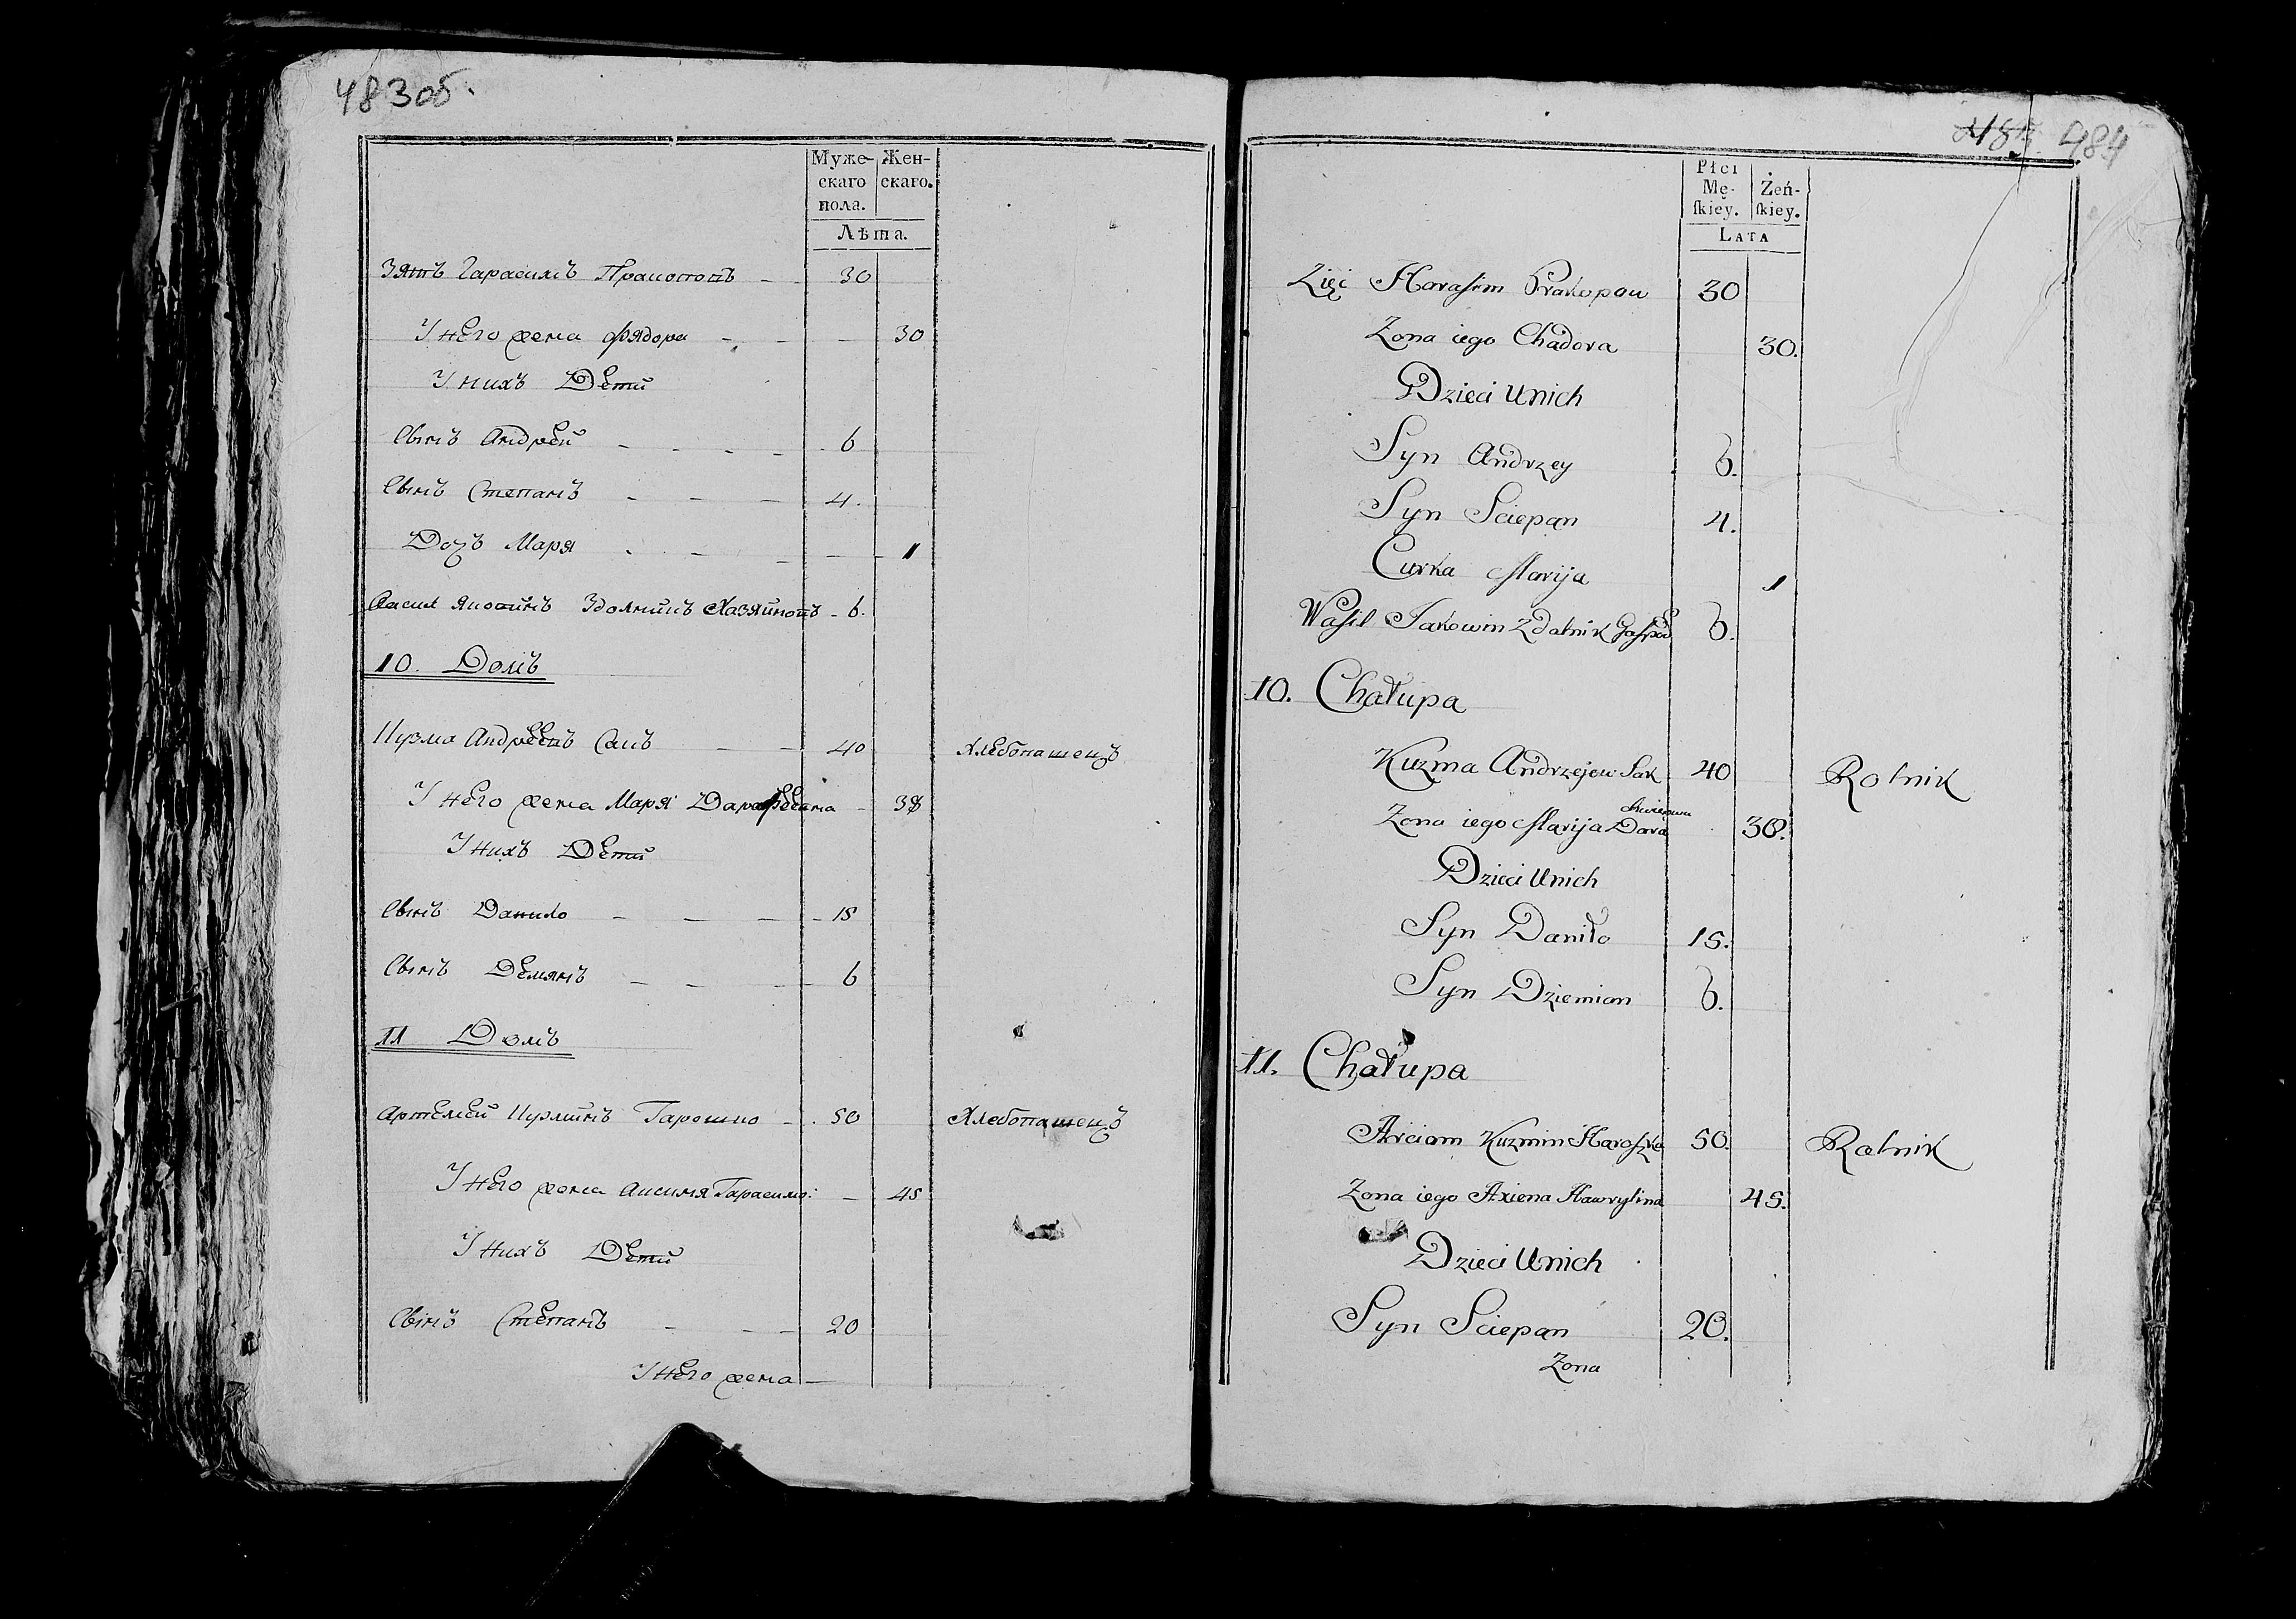 483об.
Муже-
скаго
пола.
Жен-
скаго.
Лѣта.
Зять Гарасимъ Пракоповъ 30
У него жена Фядора 30
У нихъ Дети
Сынъ Андрей 6
Сынъ Степанъ 4.
Дочь Маря 1
Васил Яковинъ Здолникъ Хазяиновъ 6.
10. Домъ
Кузма Андреевъ Сакъ 40 Хлебопашецъ
У него жена Маря Дарафеевна 38
У нихъ Дети
Сынъ Данило 15
Сынъ Демянъ 6
11 Домъ
Артемей Кузминъ Гарошко 50 Хлебопашецъ
У него жена Аксиня Гарасимо: 45
У нихъ Дети
Сынъ Степанъ 20
У него жена
484
Płci
Mę-
skiey.
Żeń-
skiey.
Lata
Zięć Harasim Prakopow 30
Zona iego Chadora 30.
Dzieci Unich
Syn Andrzey 6.
Syn Sciepan 4.
Curka Marija 1
Wasil Jakowin Zdatnik 6.
10. Chałupa
Kuzma Andrzejew Sak 40 Rolnik
Zona iego Marija Dara 38.
Dzieci Unich
Syn Daniło 15.
Syn Dziemian 6.
11. Chałupa
Arciom Kuzmin Haroszka 50. Rolnik
Zona iego Axiena Hawrylina 45.
Dzieci Unich
Syn Sciepan 20.
Zona